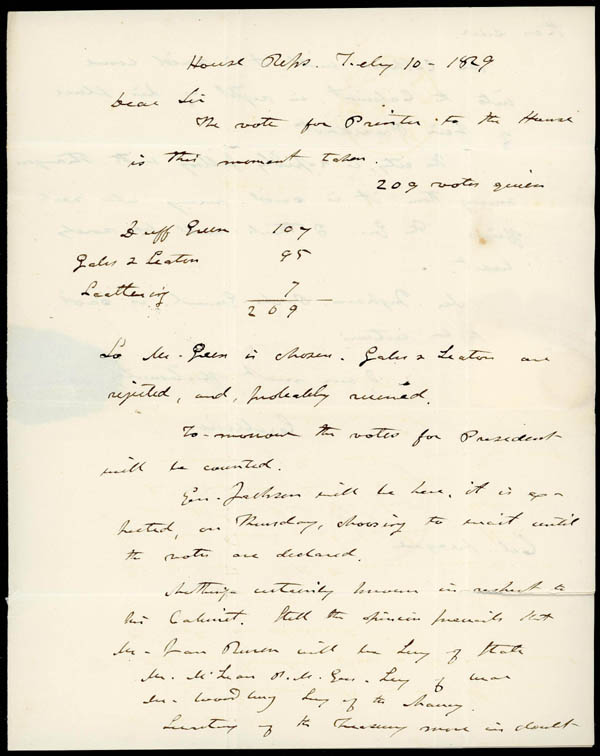 House Reps. Feby 10 - 1829
Dear Sir
The vote for Printer to the House
is this moment taken.
209 votes given
Duff Green 107
Gales & Seaton 95
Scattering 7
209
So Mr. Green is chosen. Gales & Seaton are
rejected, and, probably ruined.
To-morrow the votes for President
will be counted.
Gen. Jackson will be here, it is ex-
pected, on Thursday, choosing to wait until
the votes are declared.
Nothing certainly known in respect to
his Cabinet. Still the opinion prevails that
Mr. Van Buren will be Secy of State
Mr. McLean P.M. Gen. Secy of War
Mr. Woodbury Secy of the Navy
Secretary of the Treasury more in doubt